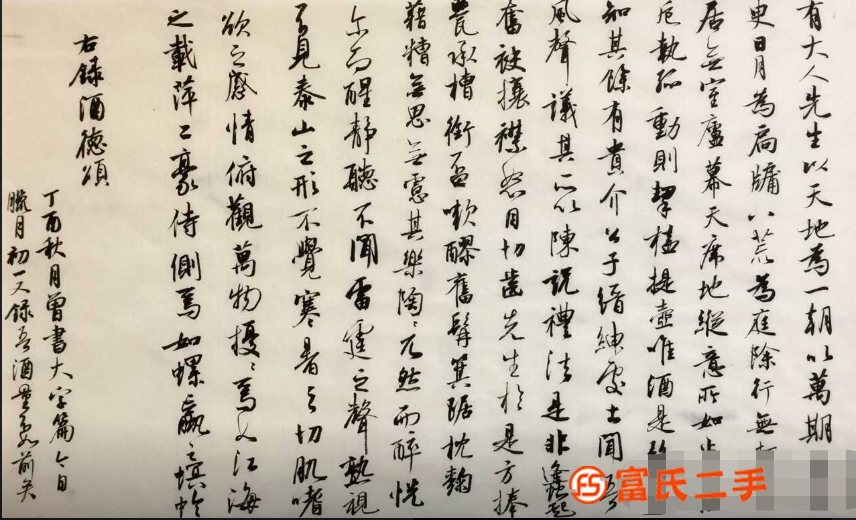 有大人先生以天地为一朝以萬期
更日月為扃牖八荒為庭除行無
居無室廬幕天席地縱意所如
卮執瓢動則挈榼提壺唯酒是
知其餘有貴介公子縉紳處士聞吾
風聲議其所以陳說禮法是非鋒起
奮袂攘襟怒目切齒先生於是方捧
甖承槽銜盃漱醪奮髯箕踞枕麴
藉糟無思無慮其樂陶〻兀然而醉恍
尔而醒靜聽不聞雷霆之聲熟視
不見泰山之形不覺寒暑之切肌嗜
欲之感情俯觀萬物擾〻焉如江海
之載萍二豪侍側焉如螺蠃之螟蛉
右錄酒德頌
丁酉秋月曾書大字篇今日
臘月初一又錄吾酒量不如前矣
富氏二手